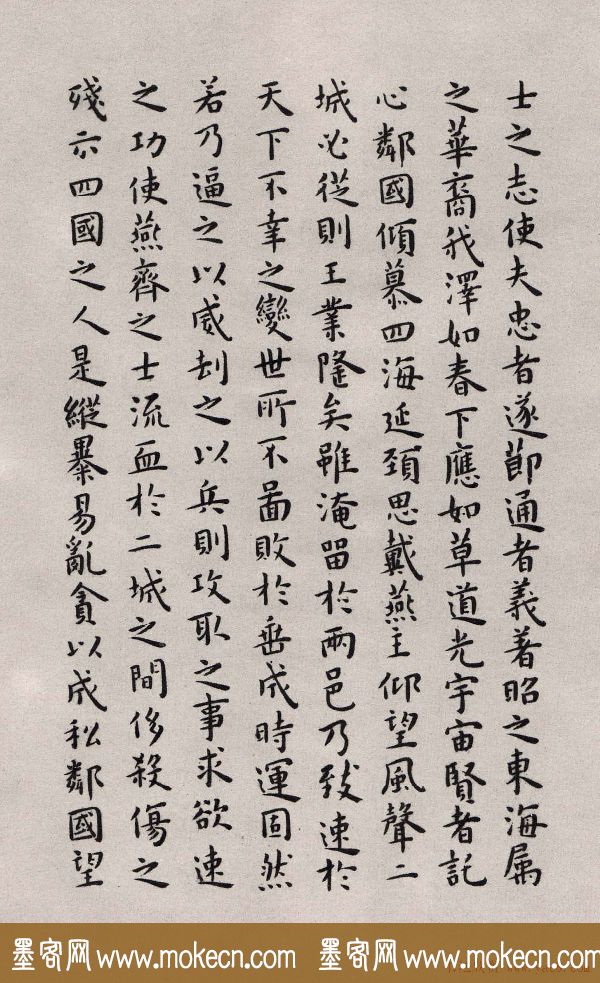 士之志使夫忠者遂節通者義著昭之東海属
之華裔我澤如春下應如草道光宇宙賢者託
心鄰國傾慕四海延頚思戴燕主仰望風聲二
城必從則王業隆矣雖淹留於兩邑乃致速於
天下不幸之變世所不啚敗於垂成時運固然
若乃逼之以威劫之以兵則攻取之事求欲速
之功使燕齊之士流血於二城之間侈殺傷之
殘示四國之人是縱暴易亂貪以成私鄰國望
墨客网 www.mokecn.com 墨客网 www.mokecn.com